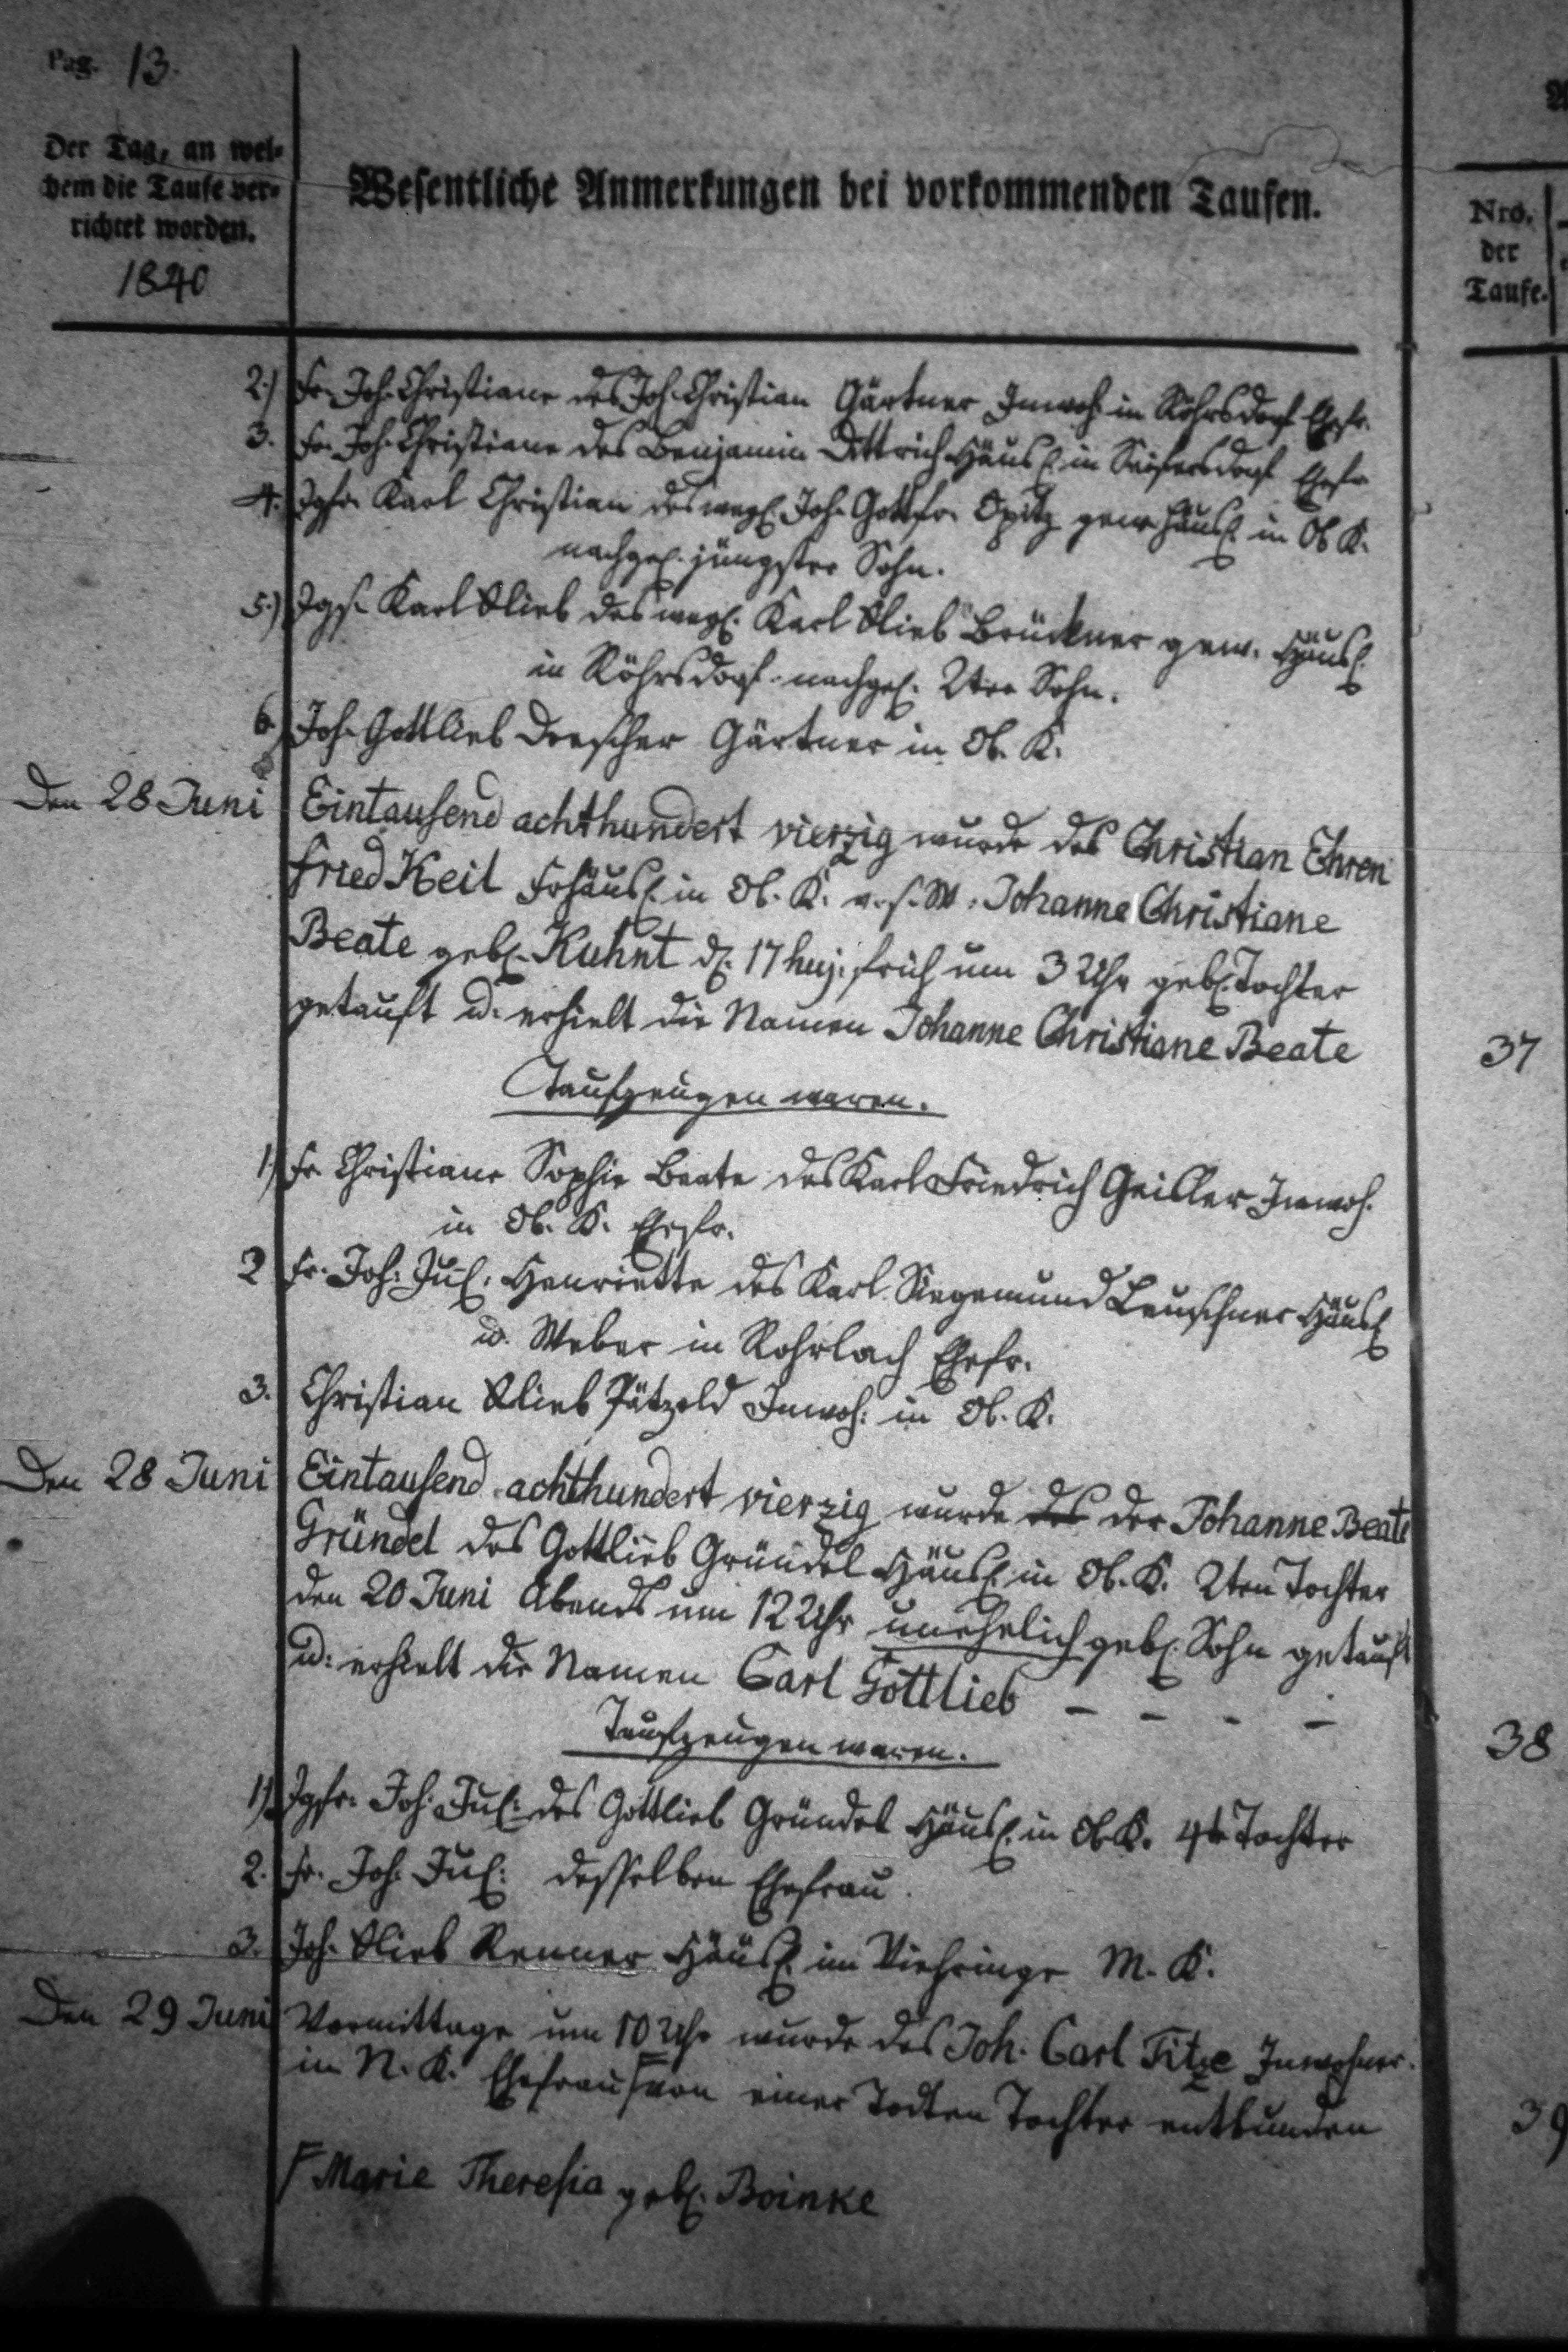 Pag. 13.
Der Tag, an wel-
chem die Taufe ver-
richtet worden.
1840
Wesentliche Anmerkungen bei vorkommenden Taufen.
Nro.
der
Taufe.
2.) Fr. Joh. Christiane des Joh. Christian Gärtner Inwoh. in Röhrsdorf Ehefr.
3. Fr. Joh. Christiane des Benjamin Dittrich Häusl. in Seifersdorf Ehefr
4. Jgs. Karl Christian des weyl. Joh. Gottfr. Opitz gew. Häusl. in Ob K.
nachgel. jüngster Sohn.
5.) Jgs. Karl Glieb des weyl. Karl Glieb Brückner gew. Häusl.
in Röhrsdorf nachgel. 2ter Sohn.
6.) Joh. Gottlieb Drescher Gärtner in Ob. K.
Den 28 Juni Eintausend achthundert vierzig wurde des Christian Ehren
fried Keil Frhäusl. in Ob. K. v. s. W. Johanne Christiane
Beate geb. Kuhnt d. 17 huj. früh um 3 Uhr geb. Tochter
getauft u. erhielt die Namen Johanne Christiane Beate
37
Taufzeugen waren.
1.) Fr Christiane Sophie Beate des Karl Friedrich Geisler Inwoh.
in Ob. K. Ehefr.
2 Fr. Joh. Jul. Henriette des Karl Siegemund Leuschner Häusl
u. Weber in Rohrlach Ehefr.
3. Christian Glieb Pätzold Inwoh. in Ob. K.
Den 28 Juni Eintausend achthundert vierzig wurde des der Johanne Beate
Gründel des Gottlieb Gründel Häusl. in Ob. K. 2ten Tochter
den 20 Juni Abends um 12 Uhr unehelich geb. Sohn getauft
u. erhielt die Namen Carl Gottlieb - - - -
38
Taufzeugen waren.
1.) Jgfr. Joh. Jul. des Gottlieb Gründel Häusl. in Ob K. 4te Tochter
2. Fr. Joh. Jul. desselben Ehefrau.
3. Joh. Glieb Renner Häusl. im Viehringe M. K.
Den 29 Juni Vormittags um 10 Uhr wurde des Joh. Carl Titze Inwohner
in N. K. Ehefrau F von einer Todten Tochter entbunden
39
F Marie Theresia geb. Boinke